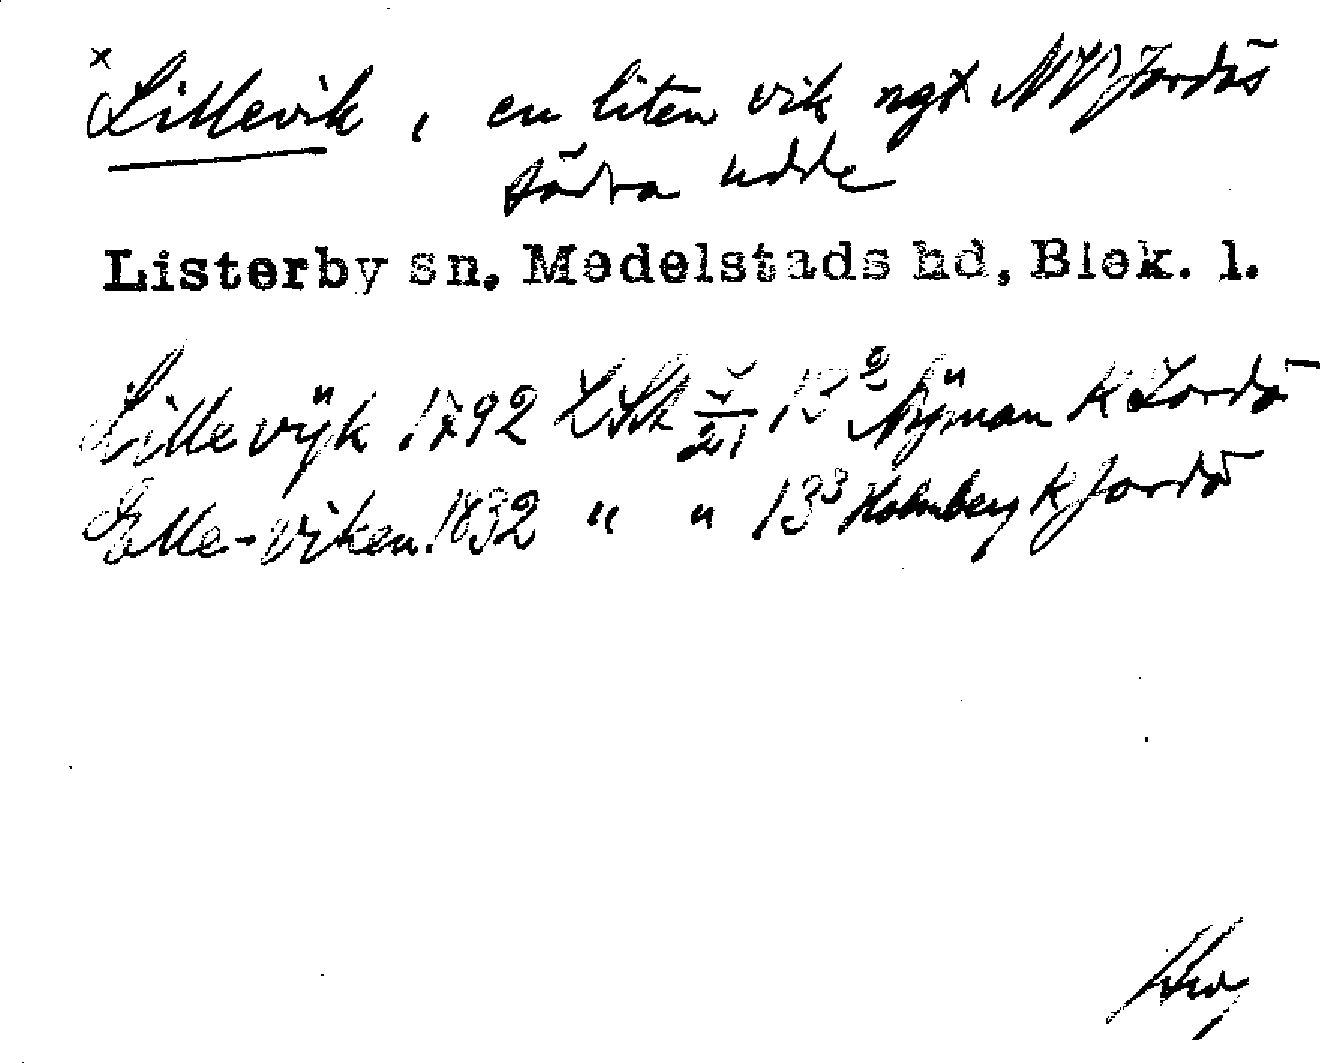 x Lillevik, en liten vik ngt NV Jordös
södra udde
Listerby sn. Medelstads hd, Blek. l.
Lille vÿk 1792 LSA 13² Nÿman K Jordö
Lille-Viken 1832 " " 13³ Holmberg K Jordö